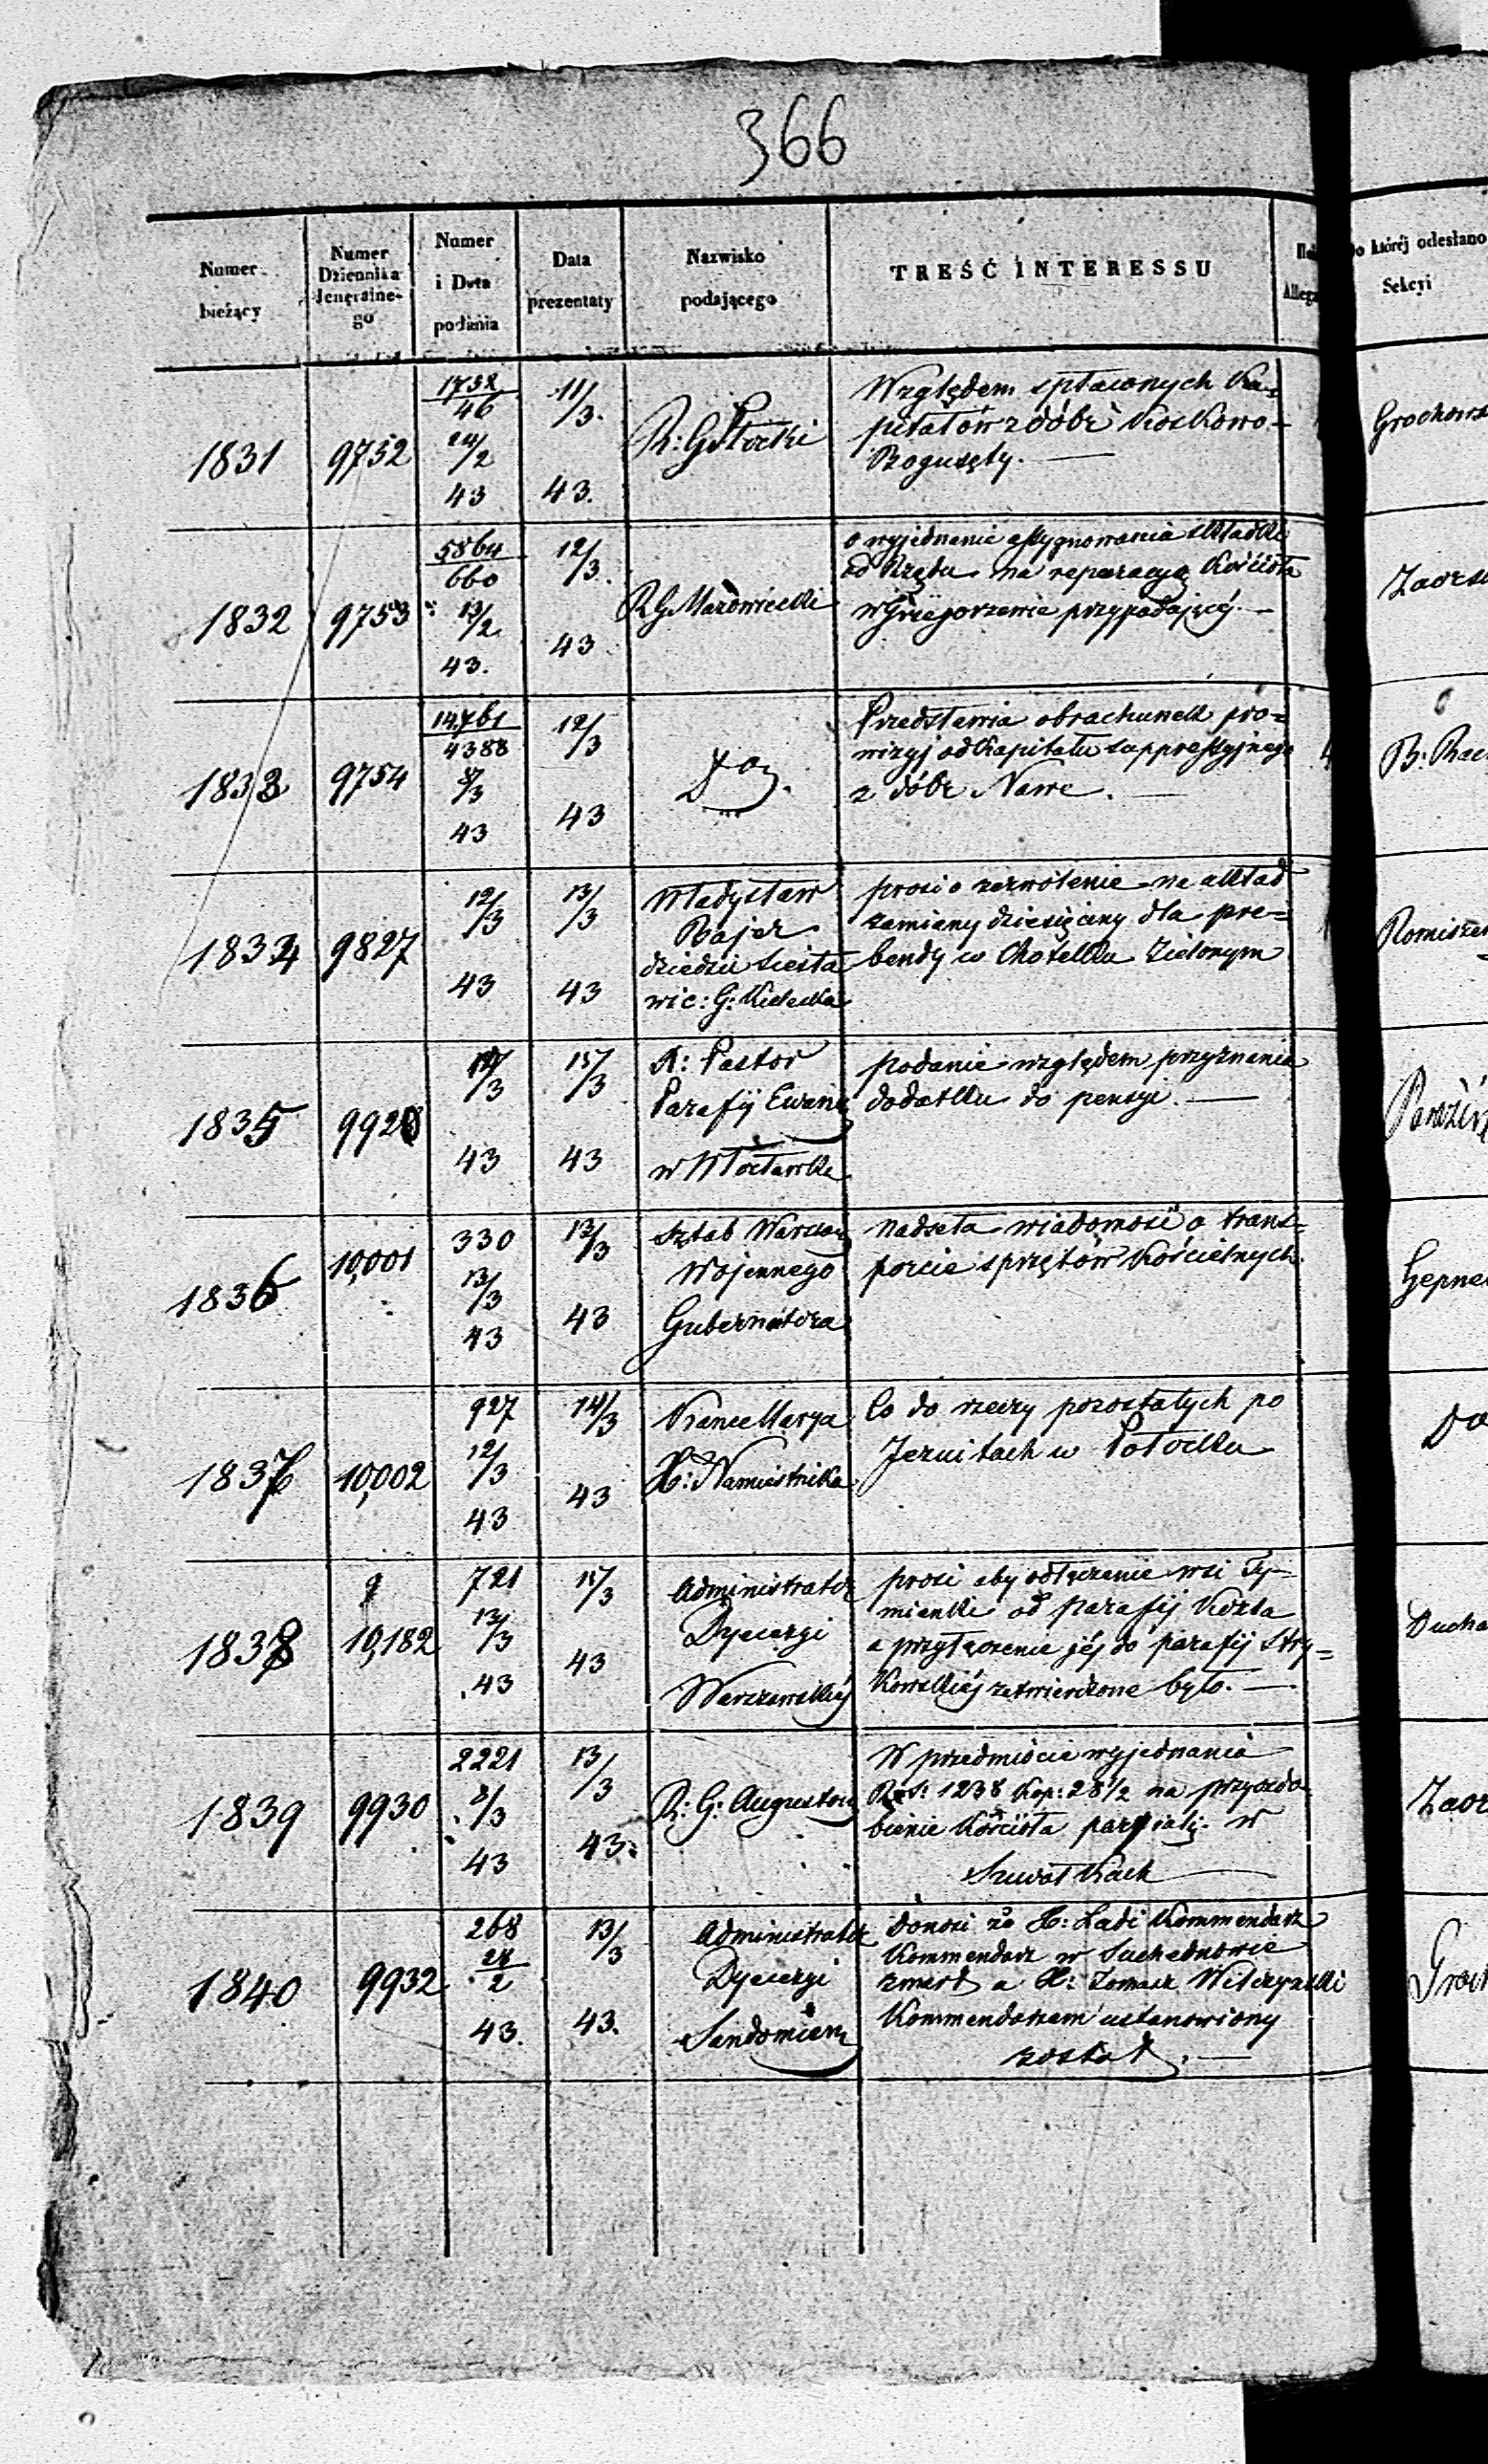 366
Numer bieżący
Numer Dziennika Jeneralnego
Numer i Data podania
Data prezentaty
Nazwisko podającego
TREŚĆ INTERESSU
Do któréj odesłano Sekcyi
1831 9752
1752/46 24/2 43
11/3. 43.
R: G Płocki
Względem spłaconych Ka=
pitałów z dóbr Koskowo-
Bogusęty. —
1832 9753
5864/660 13/2 43.
12/3. 43
R G Mazowiecki
o wyjednanie assygnowania składki
od Rządu na reparacyą Kościoła
w Grzegorzewie przypadającéj. —
1833 9754
14,761/4388 8/3 43
12/3 43
Przedstawia obrachunek pro=
wizyj od Kapitału suppressyjnego
z dóbr Nawe. —
B:
1834 9827
12/3 43
13/3 43
Władysław
Bajer
dziedzic
G: Kielecka
prosi o zezwolenie na układ
zamiany dziesięciny dla pre=
bendy w Chotelku Zielonym
1835 992
/3 43
15/3 43
X: Pastor
Parafij Ewang
w Włocławku
podanie względem przyznania
dodatku do pensyi. —
1836 10,001
330 13/3 43
13/3 43
Sztab Warszaw
Wojennego
Gubernatora
Nadseła wiadomość o trans=
porcie sprzętów Kościelnych.
1837 10,002
927 12/3 43
14/3 43
Kancellarya
X: Namiestnika
Co do rzeczy pozostałych po
Jezuitach w Połocku
1838 10,182
721 13/3 43
15/3 43
Administrator
Dyecezyi
Warszawskiéj
prosi aby odłączenie wsi Ty-
mianki od parafij Koźla
a przyłączenie jéj do parafij Stry=
kowskiéj zatwierdzone było. —
1839 9930
2221 8/3 43
13/3 43.
R: G: Augustow
W przedmiocie wyjednania
Rs: 1238 Kop: 28 1/2 na przyozdo
bienie Kościoła w
Suwałkach —
1840 9932
268 28/2 43.
13/3 43.
Administrator
Dyecezyi
Sandomiers
donosi że X: Ladi Kommendarz
Kommendarz w Suchedniowie
zmarł a X: Tomasz
Kommendarzem ustanowiony
został. —